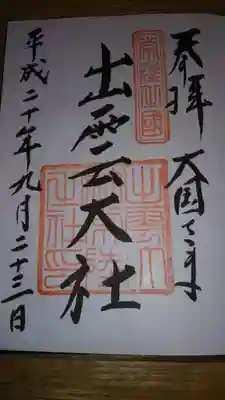 奉拝 大国さま
常陸国
出雲大社
平成二十年九月二十三日